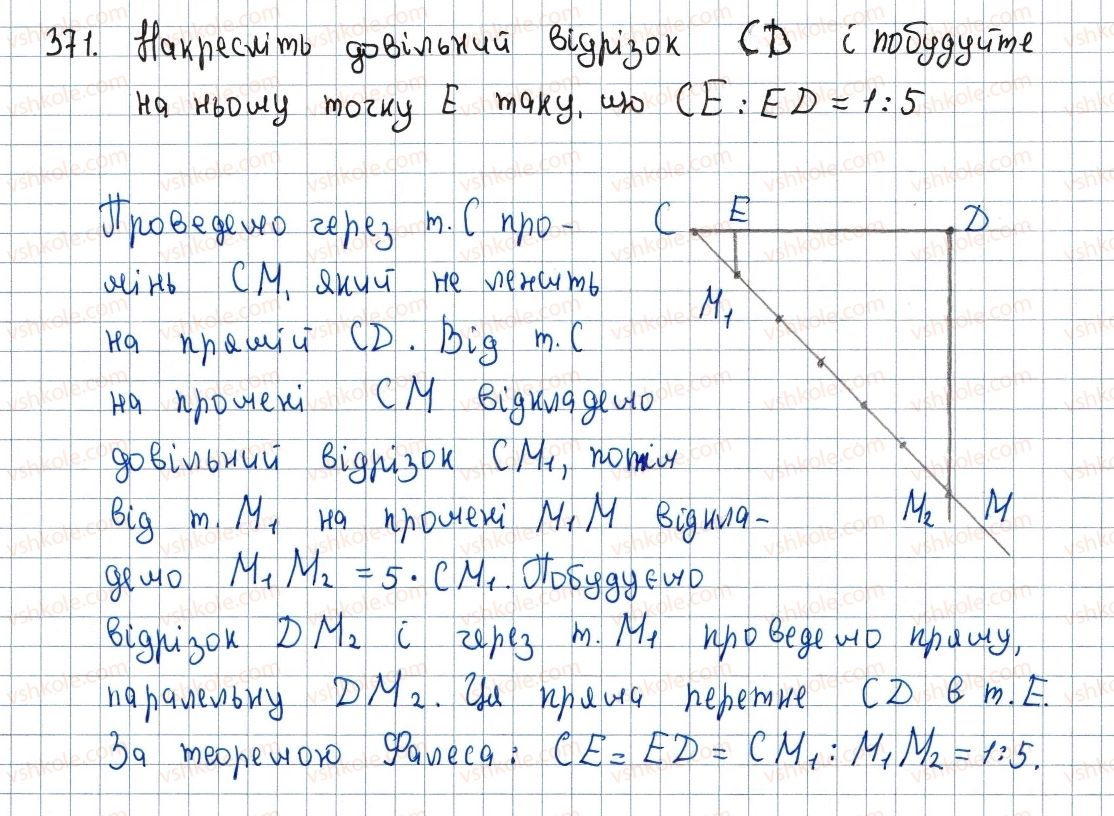 371. Накресліть довільний відрізок CD і побудуйте
на ньому точку E таку, що CE : ED = 1 : 5
Проведемо через т. C про-
мінь CM, який не лежить
на прямій CD. Від т. C
на промені CM відкладемо
довільний відрізок CM₁, потім
від т. M₁ на промені M₁M відкла-
демо M₁M₂ = 5 · CM₁. Побудуємо
відрізок DM₂ і через т. M₁ проведемо пряму,
паралельну DM₂. Ця пряма перетне CD в т. E.
За теоремою Фалеса: CE = ED = CM₁ : M₁M₂ = 1:5.
C E D
M₁
M₂ M
vshkole.com